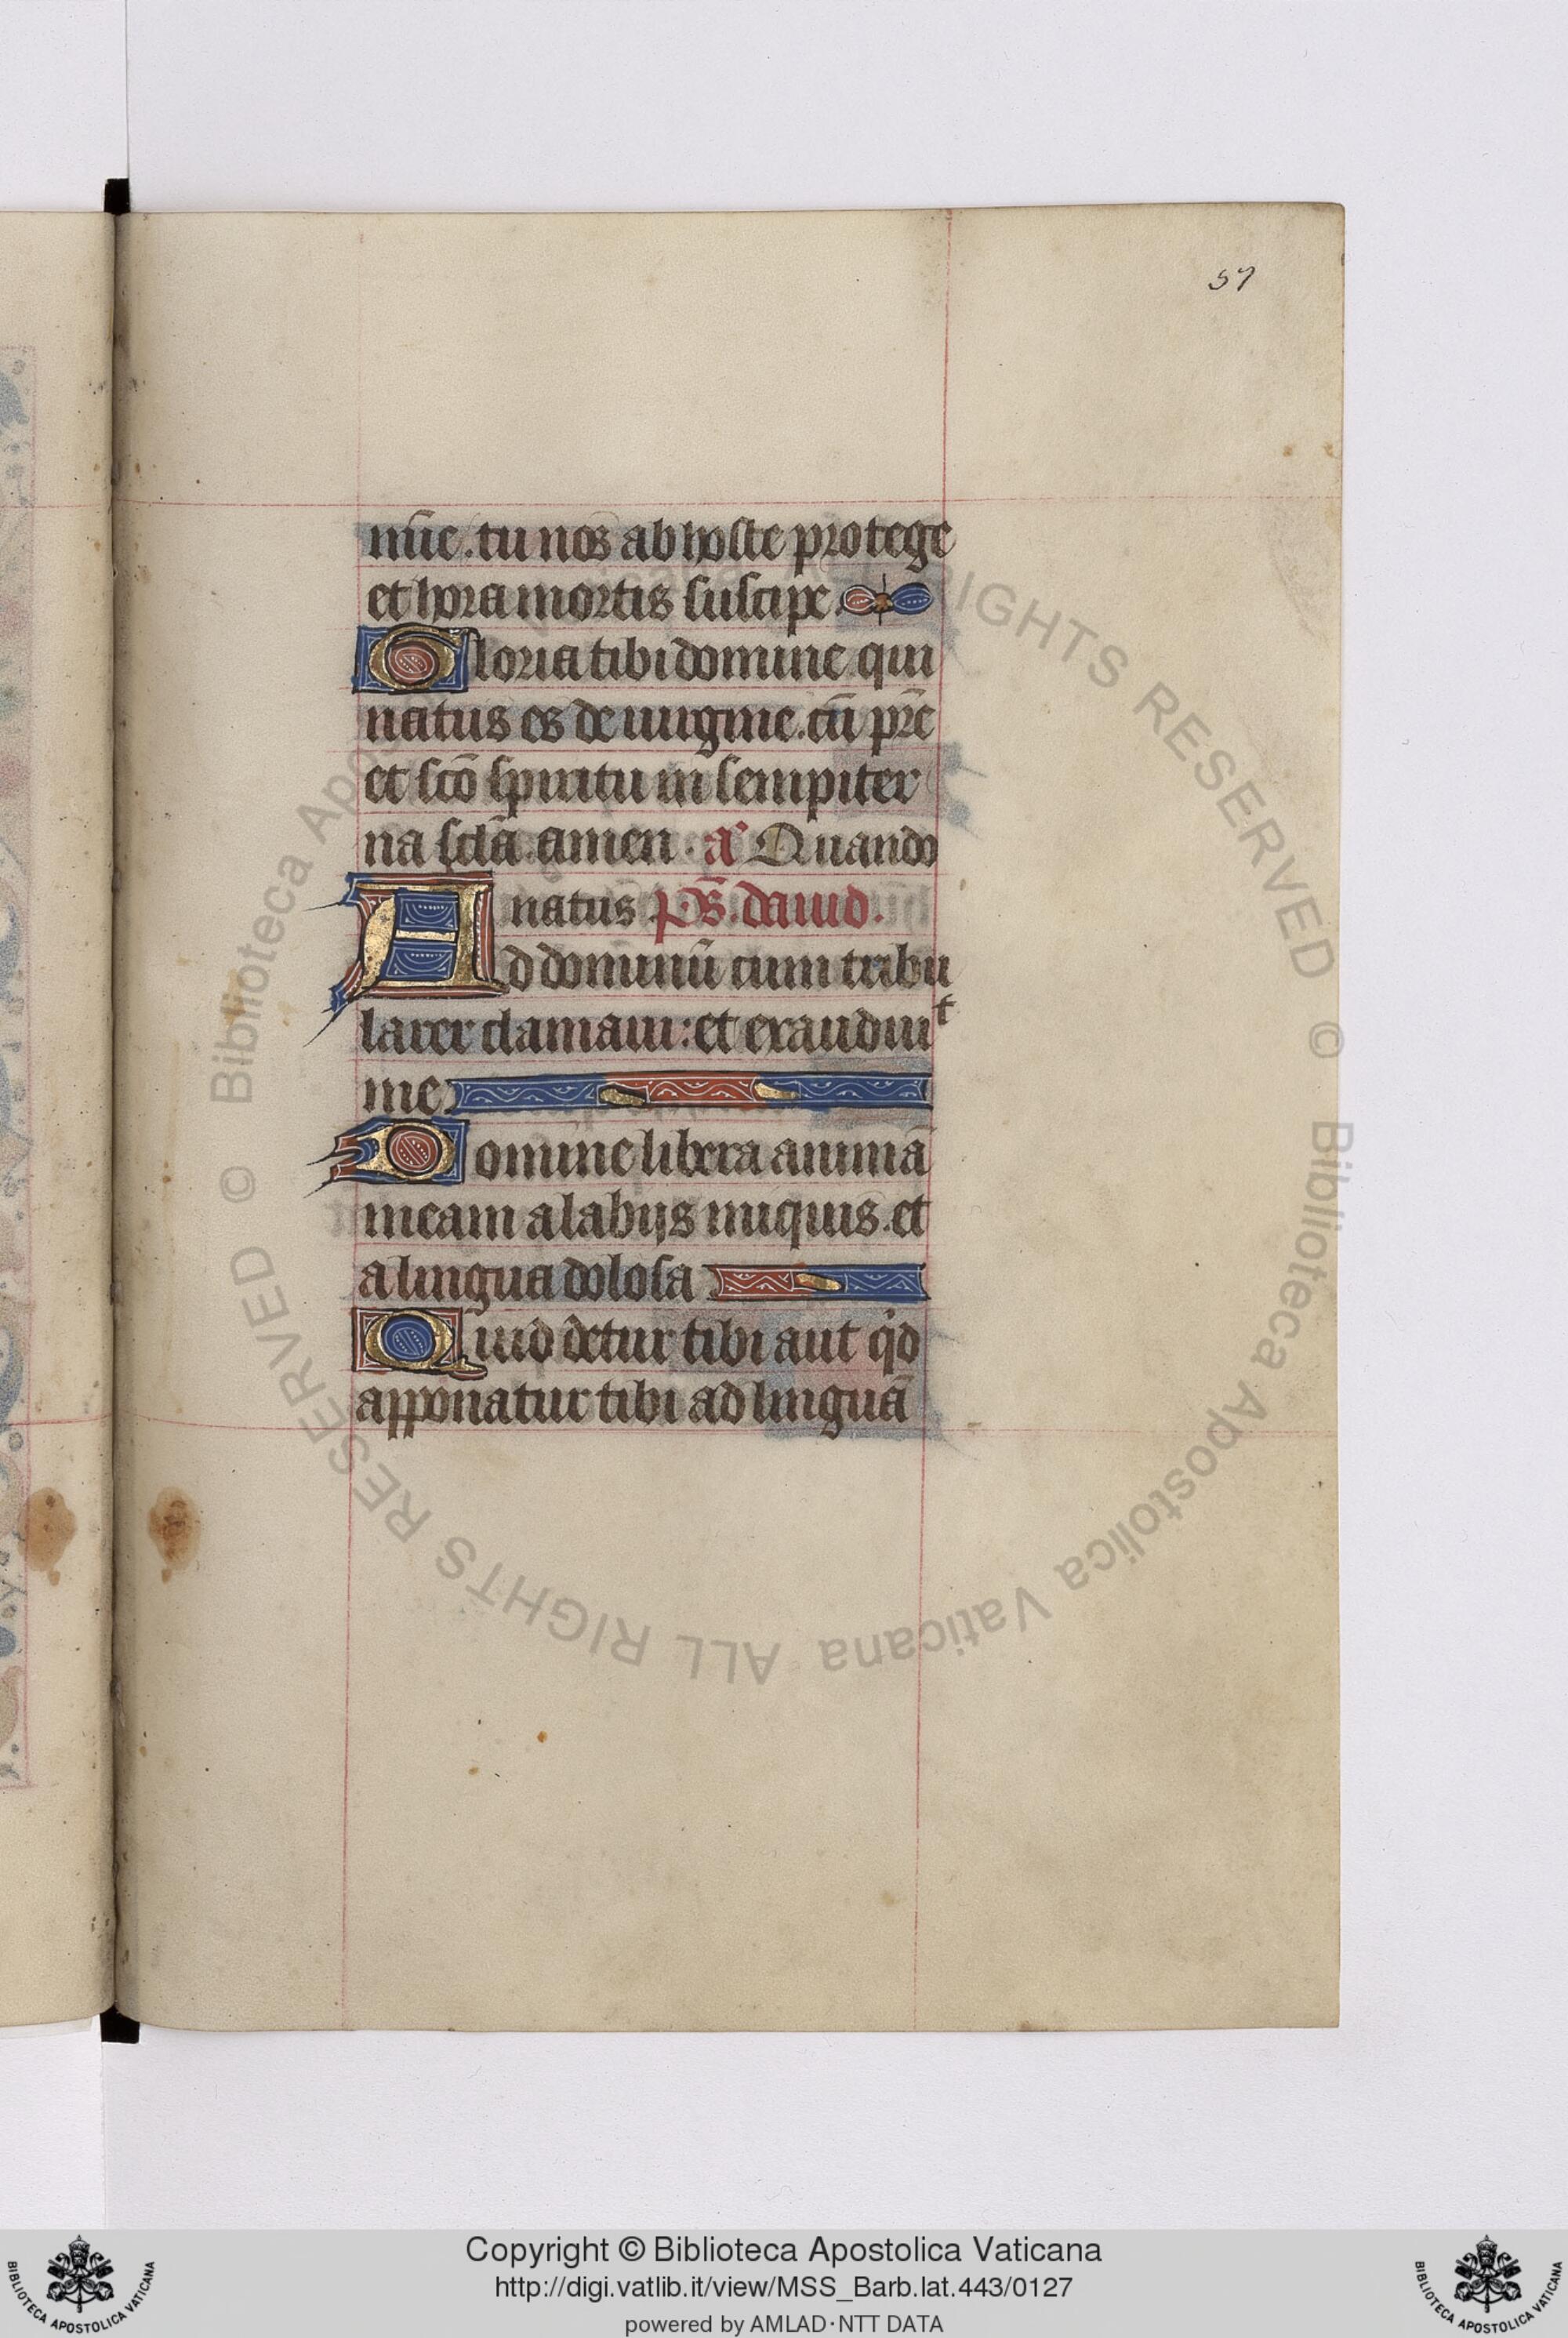 57
nr̄e. tu nos ab hoste protege
et hora mortis suscipe.
Gloria tibi domine qui
natus es de uirgine. cū pr̄e
et scō spiritu in sempiter
na scl̄a. amen. a' Quando
natus p̄s. dauid.
Ad dominū cum tribu
larer clamaui: et exaudiuit
me
Domine libera animā
meam a labijs iniquis. et
a lingua dolosa
Quid detur tibi aut qd
apponatur tibi ad linguā
© Biblioteca Apostolica Vaticana ALL RIGHTS RESERVED
Copyright © Biblioteca Apostolica Vaticana
http://digi.vatlib.it/view/MSS_Barb.lat.443/0127
powered by AMLAD·NTT DATA
BIBLIOTECA APOSTOLICA VATICANA
BIBLIOTECA APOSTOLICA VATICANA